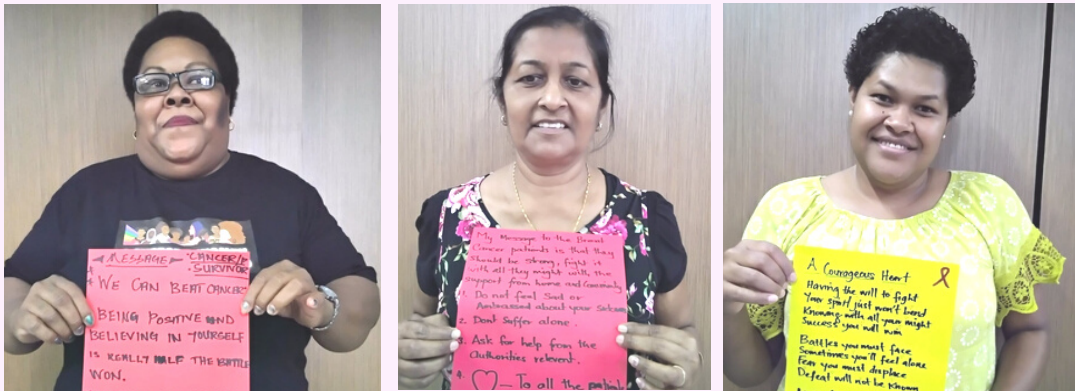 MESSAGE CANCER/B
SURVIVOR
WE CAN BEAT CANCER
BEING POSITIVE AND
BELIEVING IN YOURSELF
IS REALLY HALF THE BATTLE
WON.
My Message to the Breast
Cancer patients is that they
should be strong, fight it
with all they might with the
support from home and Community
1. Do not feel Sad or
about your
2. Dont Suffer alone.
3. Ask for help from the
Authorities relevent.
4. — To all the patients
A Courageous Heart
Having the will to fight
Your spirit just won't bend
Knowing with all your might
Success you will win
Battles you must face
Sometimes you'll feel alone
Fear you must displace
Defeat will not be known